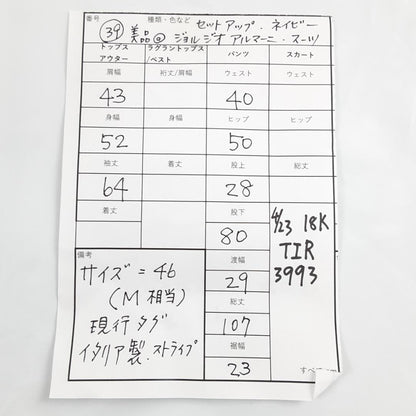 番号 種類・色など セットアップ・ネイビー
39 美品@ ジョルジオアルマーニ・スーツ
トップス アウター ラグラントップス/ベスト パンツ スカート
肩幅 裄丈/肩幅 ウェスト ウェスト
43 40
身幅 身幅 ヒップ ヒップ
52 50
袖丈 着丈 股上 総丈
64 28
着丈 股下
80
4/23 18K
TIR
3993
備考 渡幅
サイズ=46 29
(M相当) 総丈
現行タグ 107
イタリア製.ストライプ 裾幅
23
すべて